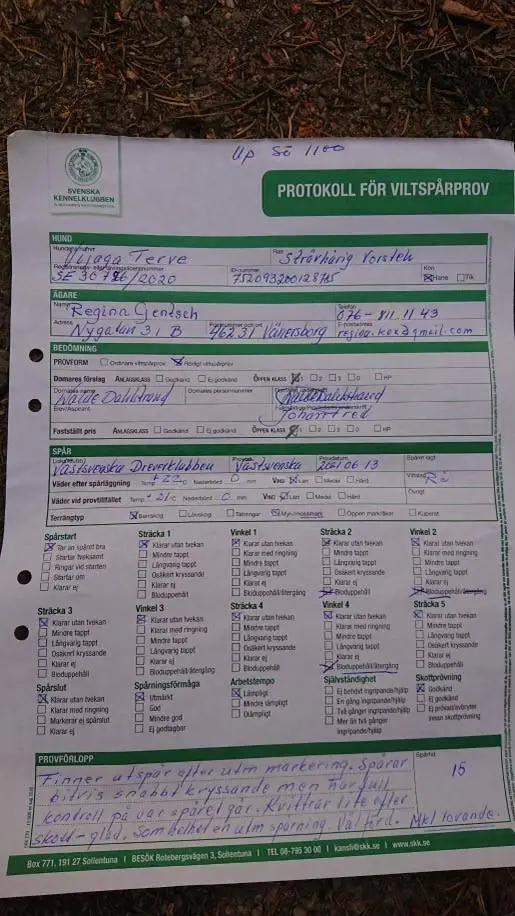 Up Sö 1100
SVENSKA
KENNELKLUBBEN
PROTOKOLL FÖR VILTSPÅRPROV
HUND
Hundens namn Vijaga Terve Ras Strävhårig Vorsteh
SE 30776/2020 ID-nummer 752093200128785 Kön Hane Tik
ÄGARE
Namn Regina Gentsch Telefon 076-811 11 43
Adress Nygatan 31 B Postnummer och ort 46231 Vänersborg E-postadress
BEDÖMNING
PROVFORM Ordinarie viltspårprov Rörligt viltspårprov
Domares förslag ANLAGSKLASS Godkänd Ej godkänd ÖPPEN KLASS 1 2 3 0 HP
Domarens namn Walde Dahlstrand Domarens personnummer
Elev/Aspirant
Fastställt pris ANLAGSKLASS Godkänd Ej godkänd ÖPPEN KLASS 1 2 3 0 HP
SPÅR
Västsvenska Dreverklubben Västsvenska Provdatum 2021 06 13 Spåret lagt
Väder efter spårläggning Temp +22 °C Nederbörd 0 mm VIND Lätt Medel Hård Rå
Väder vid provtillfället Temp +21 °C Nederbörd 0 mm VIND Lätt Medel Hård Övrigt
Terrängtyp Barrskog Lövskog Myr/mossmark Öppen mark/åker Kuperat
Spårstart
Tar an spåret bra
Startar tveksamt
Ringar vid starten
Startar om
Klarar ej
Sträcka 1
Klarar utan tvekan
Mindre tappt
Långvarig tappt
Osäkert kryssande
Klarar ej
Bloduppehåll
Vinkel 1
Klarar utan tvekan
Klarar med ringning
Mindre tappt
Långvarig tappt
Klarar ej
Bloduppehåll/återgång
Sträcka 2
Klarar utan tvekan
Mindre tappt
Långvarig tappt
Osäkert kryssande
Klarar ej
Bloduppehåll
Vinkel 2
Klarar utan tvekan
Klarar med ringning
Mindre tappt
Långvarig tappt
Klarar ej
Bloduppehåll/återgång
Sträcka 3
Klarar utan tvekan
Mindre tappt
Långvarig tappt
Osäkert kryssande
Klarar ej
Bloduppehåll
Vinkel 3
Klarar utan tvekan
Klarar med ringning
Mindre tappt
Långvarig tappt
Klarar ej
Bloduppehåll/återgång
Sträcka 4
Klarar utan tvekan
Mindre tappt
Långvarig tappt
Osäkert kryssande
Klarar ej
Bloduppehåll
Vinkel 4
Klarar utan tvekan
Klarar med ringning
Mindre tappt
Långvarig tappt
Klarar ej
Bloduppehåll/återgång
Sträcka 5
Klarar utan tvekan
Mindre tappt
Långvarig tappt
Osäkert kryssande
Klarar ej
Bloduppehåll
Spårslut
Klarar utan tvekan
Klarar med ringning
Markerar ej spårslut
Klarar ej
Spårningsförmåga
Utmärkt
God
Mindre god
Ej godtagbar
Arbetstempo
Lämpligt
Mindre lämpligt
Olämpligt
Självständighet
Ej behövt ingripande/hjälp
En gång ingripande/hjälp
Två gånger ingripande/hjälp
Mer än två gånger
ingripande/hjälp
Skottprövning
Godkänd
Ej godkänd
Ej prövad/avbryter
innan skottprövning
PROVFÖRLOPP
Spårtid
15
Finner ut spår efter utm markering. Spårar
bitvis snabbt kryssande men har full
kontroll på var spåret går. Kvittrar lite efter
skott - glad. Som helhet en utm spårning. Väl förd. Mkt lovande.
Box 771, 191 27 Sollentuna | BESÖK Rotebergsvägen 3, Sollentuna | TEL 08-795 30 00 | kansli@skk.se | www.skk.se